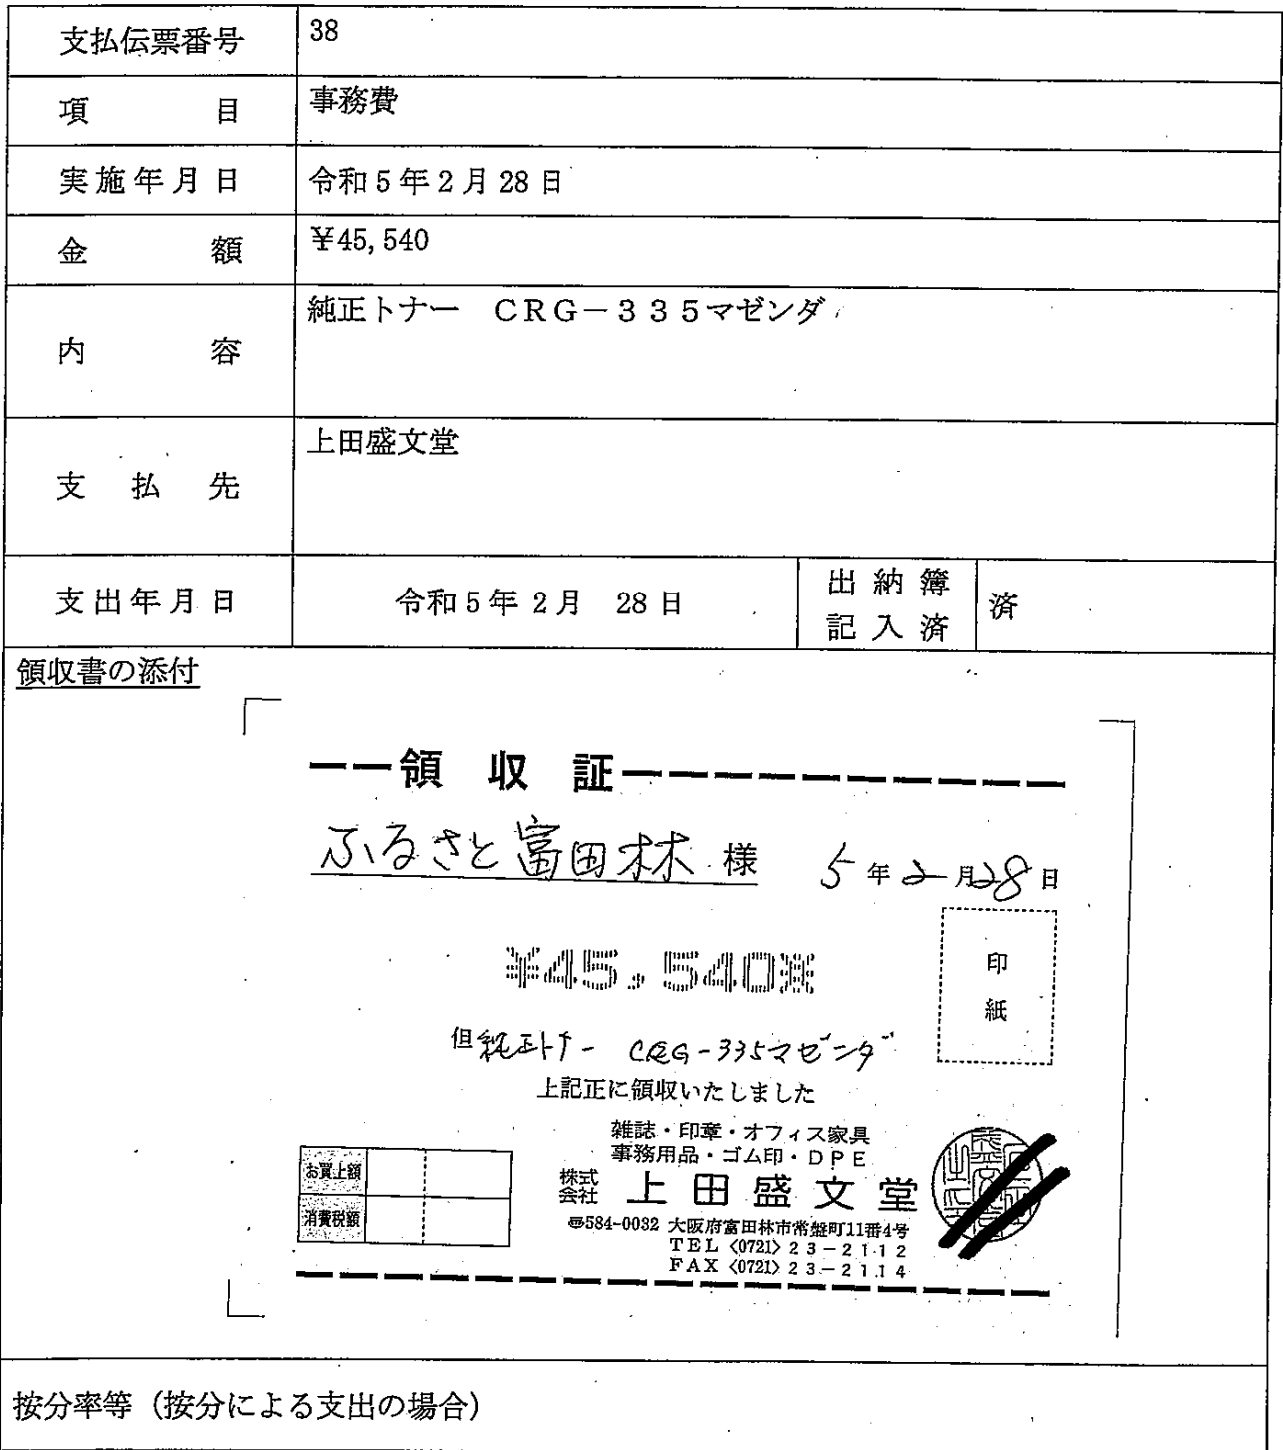 支払伝票番号 38
項目 事務費
実施年月日 令和5年2月28日
金額 ¥45,540
内容 純正トナー　CRG－335マゼンダ
支払先 上田盛文堂
支出年月日 令和5年2月　28日 出納簿記入済 済
領収書の添付
領収証
ふるさと富田林 様 5年2月28日
¥45,540※
印紙
但 純正トナー CRG-335マゼンダ
上記正に領収いたしました
雑誌・印章・オフィス家具
事務用品・ゴム印・DPE
お買上額
株式会社 上田盛文堂
消費税額
〠584-0032 大阪府富田林市常盤町11番4号
TEL〈0721〉23－2112
FAX〈0721〉23－2114
按分率等（按分による支出の場合）